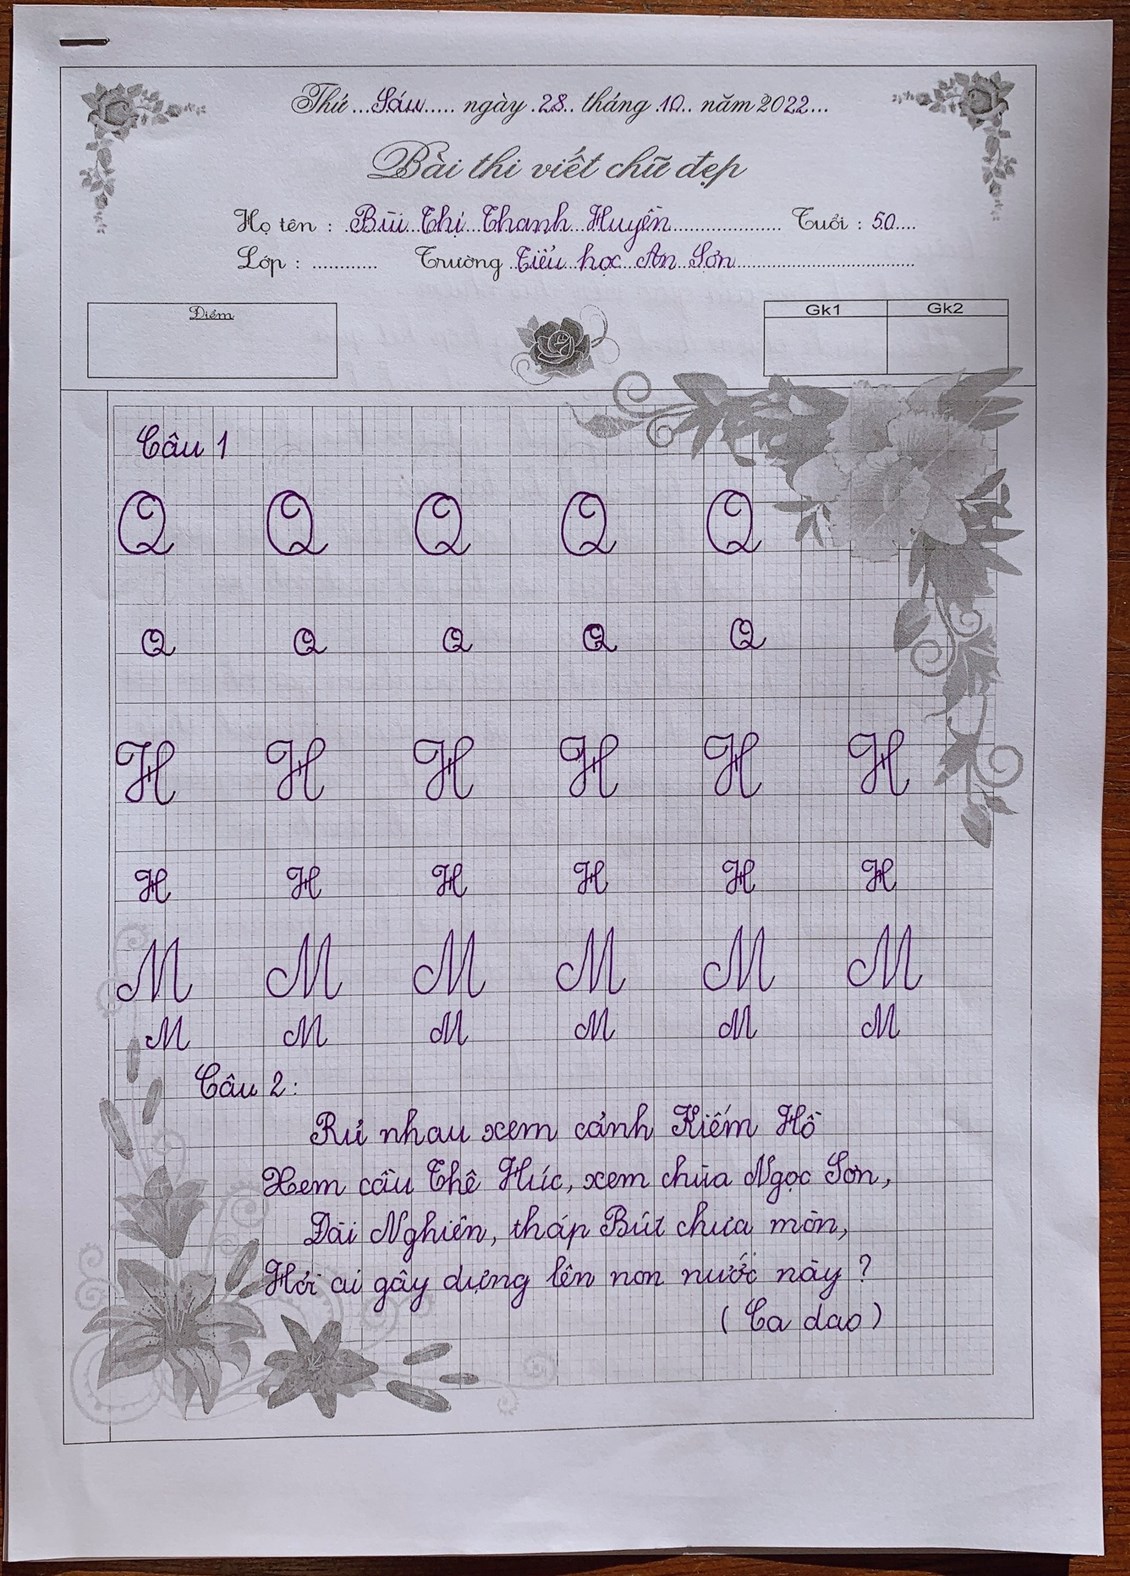 Thứ ... Sáu ..... ngày .28.. tháng .10.. năm 2022...
Bài thi viết chữ đẹp
Họ tên : ..Bùi Thị Thanh Huyền........................ Tuổi : 50....
Lớp : ............ Trường Tiểu học An Sơn.......................................
Điểm
Gk1 Gk2
Câu 1
Q Q Q Q Q
Q Q Q Q Q
H H H H H H
H H H H H H
M M M M M M
M M M M M M
Câu 2:
Rủ nhau xem cảnh Kiếm Hồ
Xem cầu Thê Húc, xem chùa Ngọc Sơn,
Đài Nghiên, tháp Bút chưa mòn,
Hỏi ai gây dựng lên non nước này ?
( Ca dao )